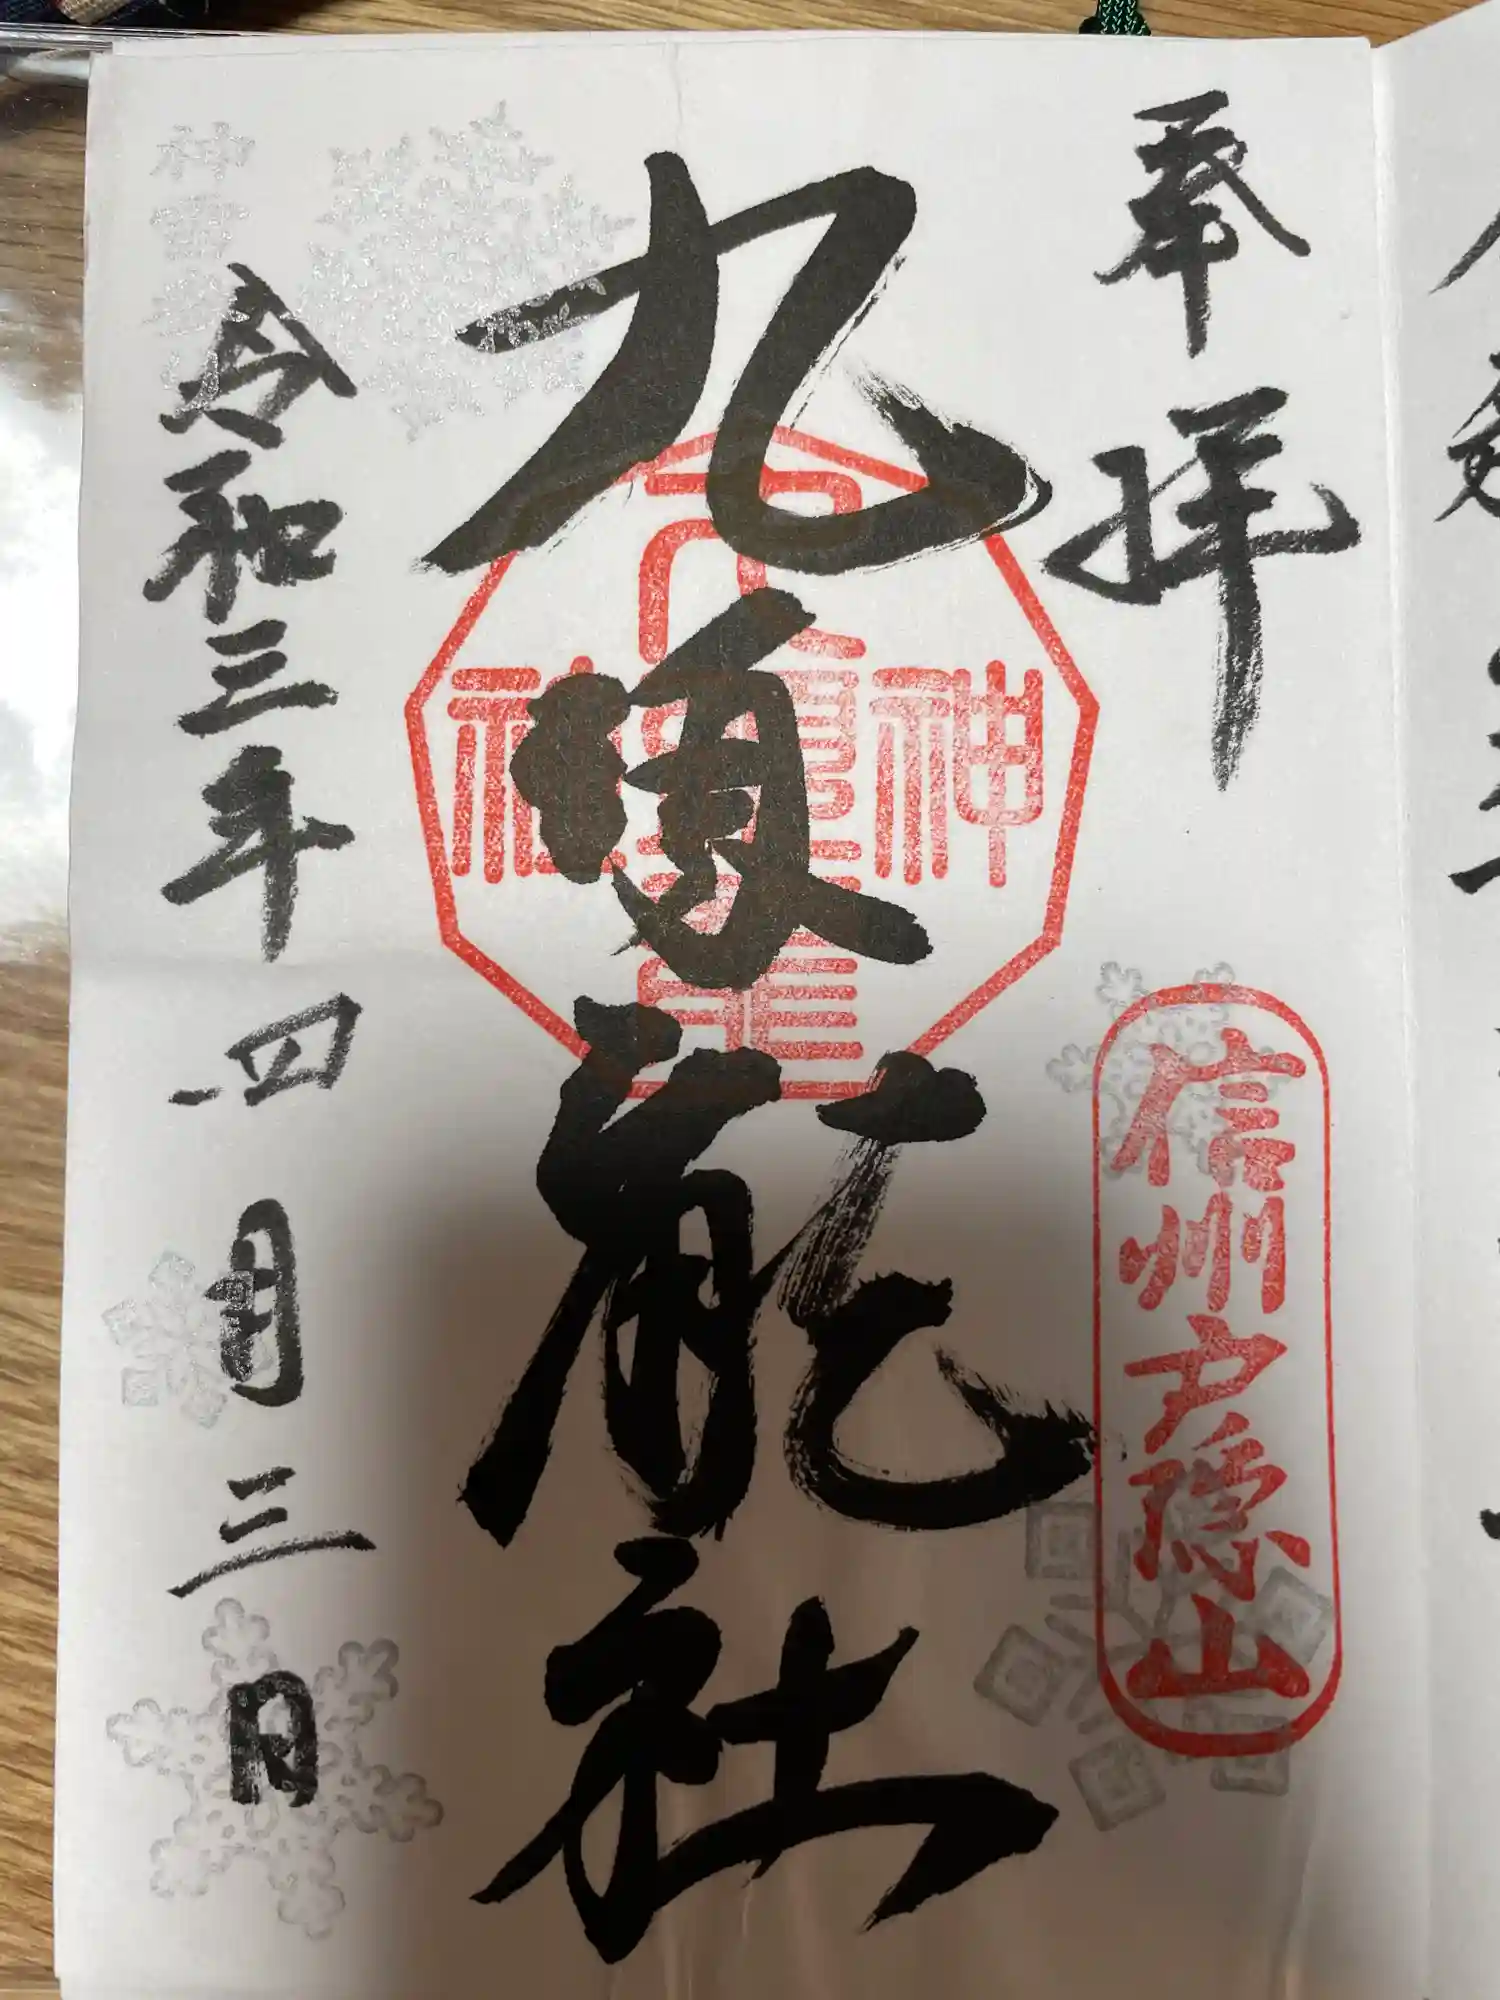 奉拝
信州戸隠山
九頭龍社
神
社
令和三年四月三日
神